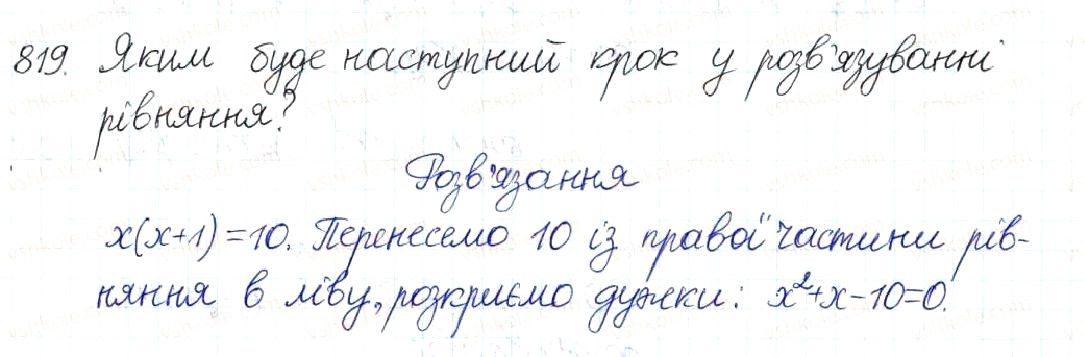 819. Яким буде наступний крок у розв'язуванні
рівняння?
Розв'язання
x(x+1)=10. Перенесемо 10 із правої частини рів-
няння в ліву, розкриємо дужки: x²+x-10=0.